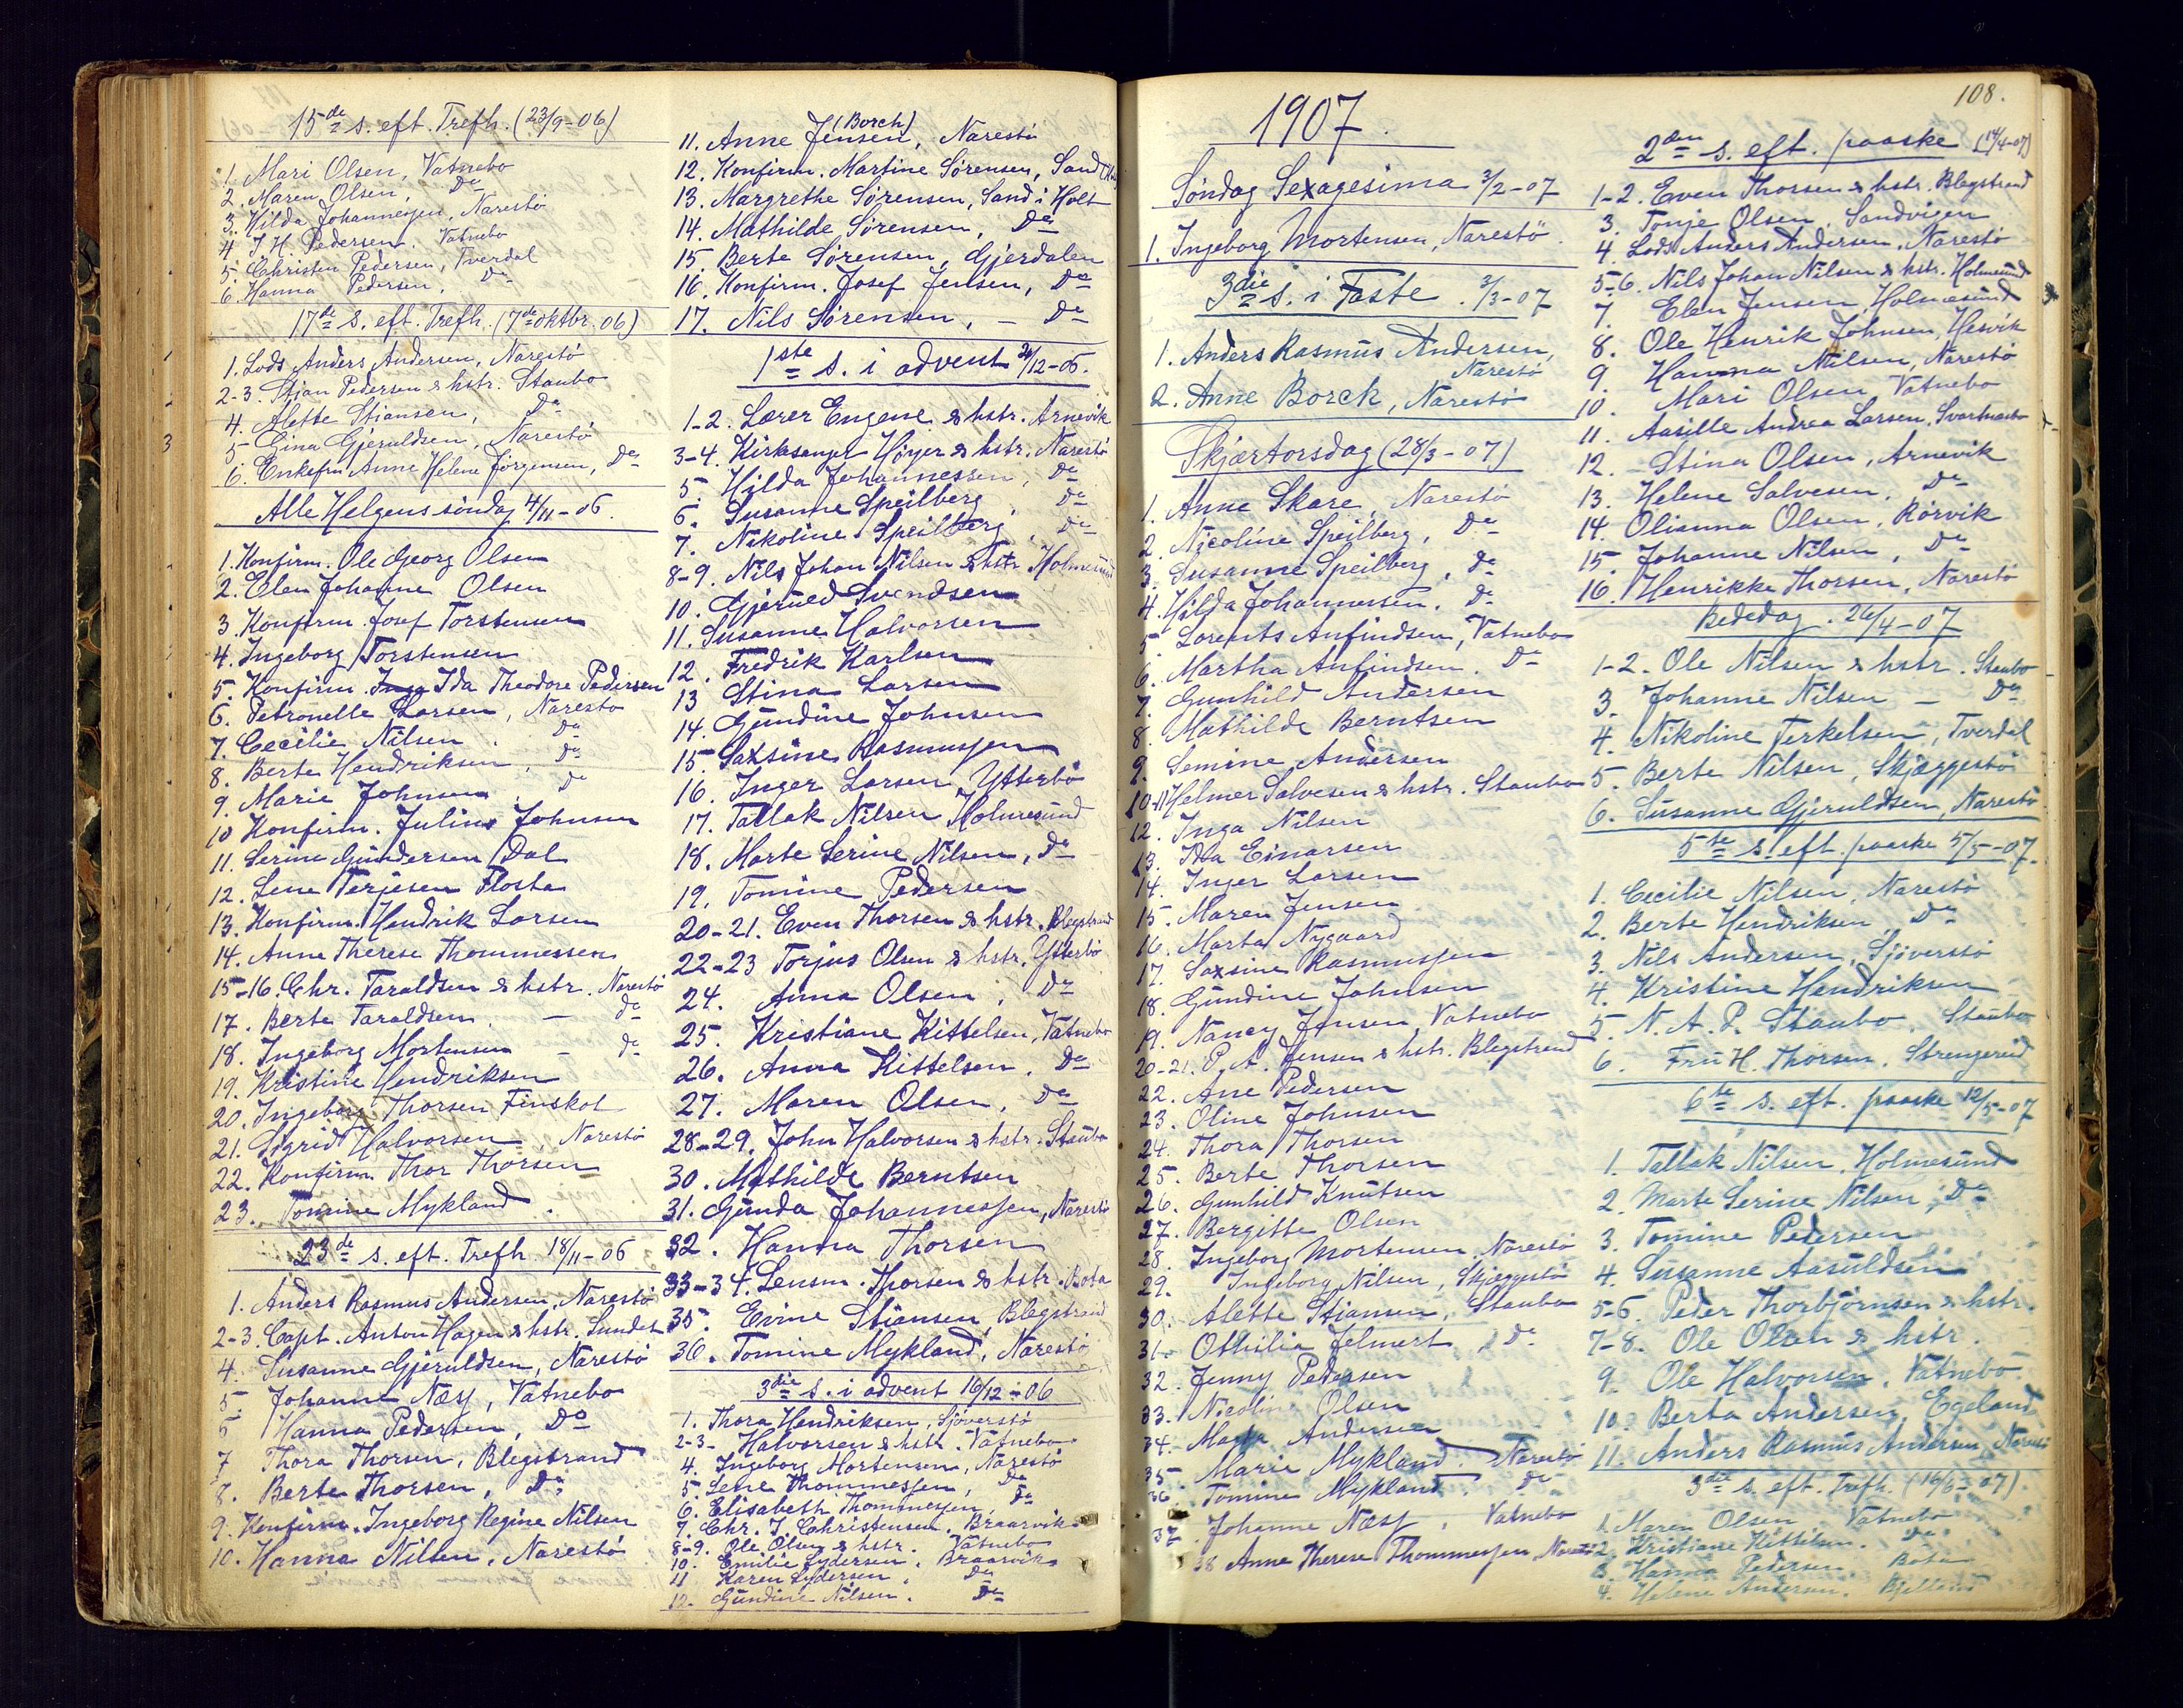 15de s. eft. Trefh. (23/9-06)
1. Mari Olsen, Vatnebo
2. Maren Olsen, Do
3. Hilda Johannesen, Narestö
4. J. H. Pedersen. Vatnebo
5. Christen Pedersen, Tverdal
6. Hanna Pedersen. Do
17de s. eft. Trefh. (7de oktbr. 06)
1. Lods Anders Andersen, Narestö
2-3. Stian Pedersen & hstr. Staubo
4. Alette Stiansen, Do
5. Gina Gjeruldsen, Narestö
6. Enkefru Anne Helene Jörgensen, Do
Alle Helgens söndag 4/11-06.
1. Konfirm. Ole Georg Olsen
2. Elen Johanne Olsen
3. Konfirm. Josef Torstensen
4. Ingeborg Torstensen
5. Konfirm. Ida Theodore Pedersen
6. Petronelle Larsen, Narestö
7. Cecilie Nilsen. Do
8. Berte Hendriksen, Do
9. Marie Johnsen, Do
10 Konfirm. Julius Johnsen
11. Serine Gundersen Dal
12. Lene Terjesen Flosta
13. Konfirm. Hendrik Larsen
14. Anne Therese Thommessen
15-16. Chr. Taraldsen & hstr. Narestö
17. Berte Taraldsen. — Do
18. Ingeborg Mortensen — Do
19. Kristine Hendriksen
20. Ingeborg Thorsen Finskot
21. Sigrid Halvorsen, Narestö
22. Konfirm. Thor Thorsen
23. Tomine Mykland.
23de s. eft. Trefh. 18/11-06
1. Anders Rasmus Andersen, Narestö
2-3. Capt. Anton Hagen & hstr. Sundet
4. Susanne Gjeruldsen, Narestö
5. Johanne Næss, Vatnebo
6 Hanna Pedersen, Do
7 Thora Thorsen, Blegstrand
8. Berte Thorsen, Do
9. Konfirm. Ingeborg Regine Nilsen
10. Hanna Nilsen, Narestö
11. Anne Jensen, (Borch) Narestö
12. Konfirm. Martine Sörensen, Sand
13. Margrethe Sörensen, Sand i Holt
14. Mathilde Sörensen, Do
15. Berte Sörensen, Gjerdalen
16. Konfirm. Josef Jensen, Do
17. Nils Sörensen, — Do
1ste s. i advent 2/12-06.
1-2. Lærer Engene & hstr. Arnevik
3-4. Kirkesanger Höyer & hstr. Narestö
5. Hilda Johannessen, Do
6. Susanne Speilberg, Do
7. Nikoline Speilberg, Do
8-9. Nils Johan Nilsen & hstr Holmesund
10. Gjerued Svendsen
11. Susanne Halvorsen
12. Fredrik Karlsen
13 Stina Larsen
14. Gundine Johnsen
15. Saxsine Rasmussen
16. Inger Larsen, Ytterbö
17. Tallak Nilsen Holmesund
18. Marte Serine Nilsen, Do
19. Tomine Pedersen
20-21. Even Thorsen & hstr. Blegstrand
22-23 Torjus Olsen & hstr. Ytterbö
24. Anna Olsen, Do
25. Kristiane Kittelsen, Vatnebo
26. Anna Kittelsen. Do
27. Maren Olsen, Do
28-29. John Halvorsen & hstr. Staubo
30. Mathilde Berntsen
31. Gunda Johannessen, Narestö
32. Hanna Thorsen
33-34. Lensm. Thorsen & hstr. Bota
35. Evine Stiansen, Blegstrand
36. Tomine Mykland, Narestö
3die s. i advent 16/12-06
1. Thora Hendriksen, Sjöverstö
2-3- Halvorsen & hstr. Vatnebo
4. Ingeborg Mortensen, Narestö
5. Lene Thommessen, Do
6. Elisabeth Thommessen, Do
7. Chr. J. Christensen. Braarvik
8-9. Ole Olsen & hstr. Vatnebo
10. Emilie Lydersen. Braarvik
11 Karen Lydersen, Do
12. Gundine Nilsen. Do
1907.
Söndag Sexagesima 3/2-07
1. Ingeborg Mortensen, Narestö.
3die s. i Faste. 3/3-07
1. Anders Rasmus Andersen,
Narestö
2. Anne Borck, Narestö
Skjærtorsdag (28/3-07)
1. Anne Skare, Narestö
2. Nicoline Speilberg, Do
3. Susanne Speilberg, Do
4. Hilda Johannessen. Do
5. Lorents Anfindsen, Vatnebo
6. Martha Anfindsen. Do
7. Gunhild Andersen
8. Mathilde Berntsen
9. Semine Andersen
10-11 Helmer Salvesen & hstr. Staubo
12. Inga Nilsen
13. Ida Einarsen
14. Inger Larsen
15. Maren Jensen
16. Marta Nygaard
17. Saxsine Rasmussen
18. Gundine Johnsen
19. Nancy Jensen, Vatnebo
20-21. P. A. Jensen & hstr. Blegstrand
22. Ane Pedersen
23. Oline Johnsen
24. Thora Thorsen
25. Berte Thorsen
26. Gunhild Knutsen
27. Bergitte Olsen
28. Ingeborg Mortensen, Narestö
29. Ingeborg Nilsen, Skjæggestö
30. Alette Stiansen, Staubo
31. Othilia Jelmert, Do
32. Jenny Pedersen
33. Nicoline Olsen
34. Marta Andersen
35. Marie Mykland. Narestö
36. Tomine Mykland. Do
37. Johanne Næss, Vatnebo
38 Anne Therese Thommessen, Narestö
108.
2den s. eft. paaske (14/4-07)
1-2. Even Thorsen & hstr. Blegstrand
3. Tonje Olsen, Sandvigen
4. Lods Anders Andersen, Narestö
5-6. Nils Johan Nilsen & hstr. Holmesund
7. Elen Jensen, Holmesund
8. Ole Henrik Johnsen, Hesvik
9 Hanna Nilsen, Narestö
10. Mari Olsen Vatnebo
11. Aasille Andrea Larsen,
12. Stina Olsen, Arnevik
13. Helene Salvesen. Do
14. Olianna Olsen, Rörvik
15. Johanne Nilsen, Do
16. Henrikke Thorsen, Narestö
Bededag. 26/4-07
1-2. Ole Nilsen & hstr. Staubo
3. Johanne Nilsen — Do
4. Nikoline Terkelsen, Tverdal
5. Berte Nilsen, Skjæggestö
6. Susanne Gjeruldsen, Narestö
5te s. eft. paaske 5/5-07.
1. Cecilie Nilsen, Narestö
2. Berte Hendriksen Do
3. Nils Andersen, Sjöverstö
4. Kristine Hendriksen
5. N. A. P. Staubo Staubo
6. Fru H. Thorsen. Strengereid
6te s. eft. paaske 12/5-07
1. Tallak Nilsen, Holmesund
2. Marte Serine Nilsen, Do
3. Tomine Pedersen
4. Susanne Aasuldsen
5-6. Peder Thorbjörnsen & hstr.
7-8. Ole Olsen & hstr.
9. Ole Halvorsen, Vatnebo
10. Berta Andersen, Egeland
11. Anders Rasmus Andersen, Narestö
3die s. eft. Trefh. (16/6-07).
1. Maren Olsen, Vatnebo
2. Kristiane Kittilsen. Do
3. Hanna Pedersen. Bota
4. Helene Andersen. Bjelland